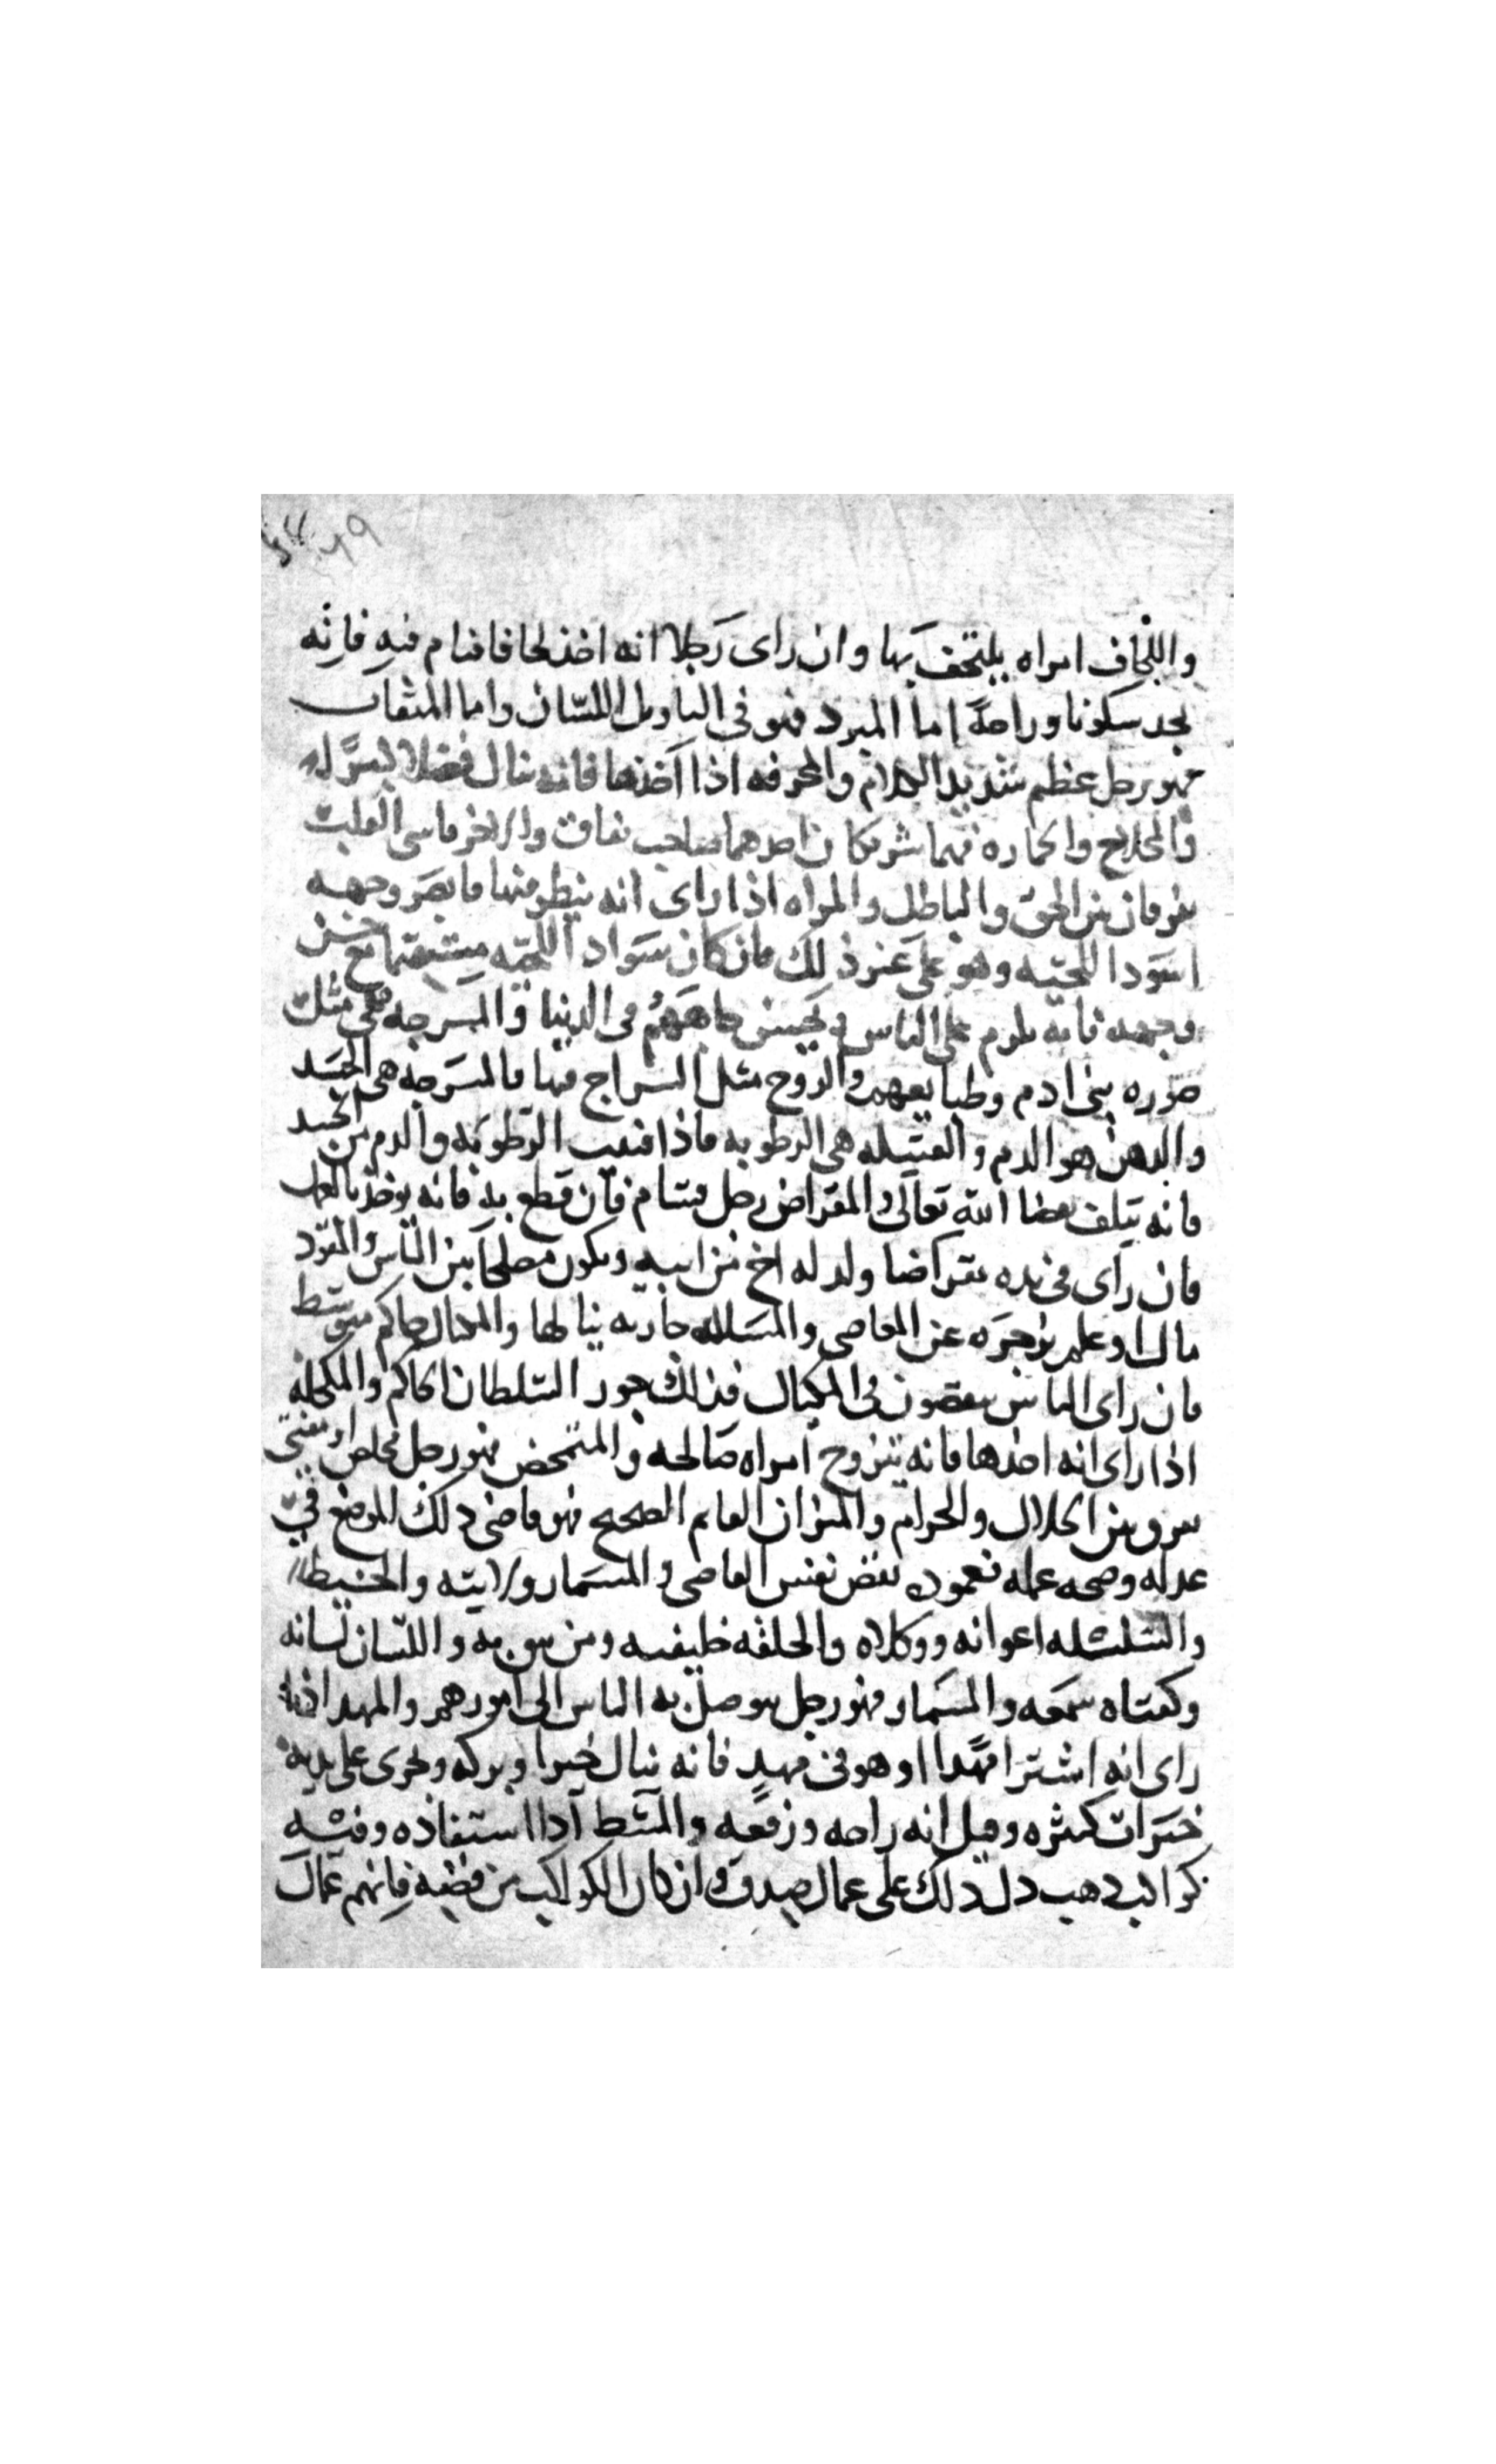 واللحاف امراه يلتحف بها وان راى رجلا انه اخذ لحافا فنام فيه فانه
يجد سكونا وراحة اما المبرد فهو في التاويل اللسان واما المثقاب
فهو رجل عظيم شديد الكلام والمجرفه اذا اخذها فانه ينال فضلا
والمحلاج فهما شريكان احدهما صاحب نفاق والاخر قاسى القلب
يفرقان بين الحق والباطل والمراه اذا راى انه ينظر فيها فابصر وجهه
اسود اللحيه وهو على غير ذلك فان كان سواد اللحيه مع حسن
وجهه فانه يكرم على الناس ويحسن جاههم في الدنيا والمسرجه فهي مثل
صوره بني ادم وطبايعهم والروح مثل السراج فيها فالمسرجه هي الجسد
والدهن هو الدم والفتيله هي الرطوبه فاذا فنيت الرطوبه والدم من الجسد
فانه يتلف بقضا الله تعالى والمقراض رجل قسام فان قطع به فانه
فان راى في يده مقراضا ولد له اخ من ابيه ويكون مصلحا بين الناس والمقود
مال او علم يزجره عن المعاصي والمسله جاريه ينالها والمكيال حاكم متوسط
فان راى الناس ينقصون في المكيال فذلك جور السلطان الحاكم والمكحله
اذا راى انه اخذها فانه يتزوج امراه صالحه والمتمخض فهو رجل مخلص او مفتى
يفرق بين الحلال والحرام والميزان القايم الصحيح فهو قاضي ذلك الموضع في
عدله وصحه عمله فعموده نفس القاضي والمسمار ولايته والخيط
والسلسله اعوانه ووكلاه والحلقه خليفته ومن يثق به واللسان لسانه
وكفتاه سمعه والمسمار فهو رجل يتوصل به الناس الى امورهم والمهد اذا
راى انه اشترا مهدا او هو في مهد فانه ينال خيرا وبركه وتجرى على يديه
خيرات كثيره وقيل انه راحه ورفعه والمشط اذا استفاده وفيه
كواكب ذهب دل ذلك على عمال صدق وان كان الكواكب من فضه فانهم عمال